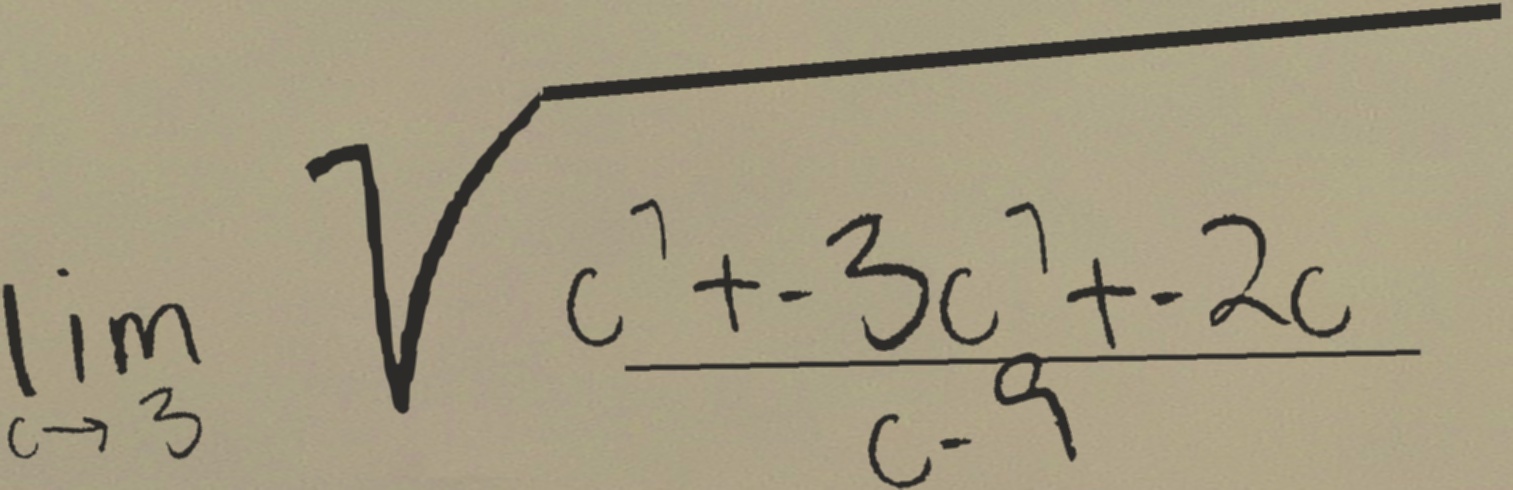 \lim_{c \to 3} \sqrt{\frac{c^7 + -3c^7 + -2c}{c - 9}}